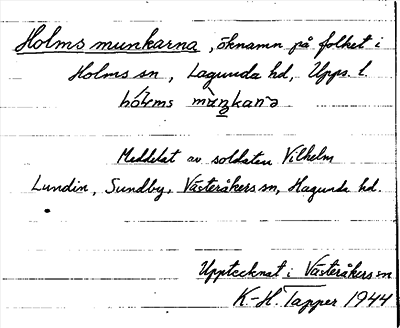 Holms munkarna, öknamn på folket i
Holms sn, Lagunda hd, Upps. l.
Meddelat av soldaten Vilhelm
Lundin, Sundby, Västeråkers sn, Hagunda hd.
Upptecknat i Västeråkers sn
K-H. Tapper 1944